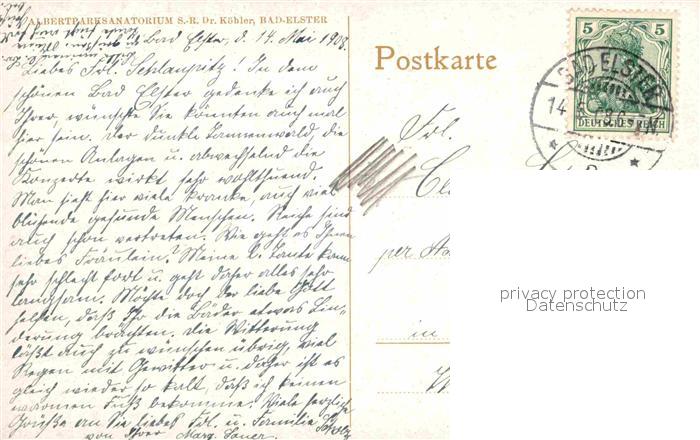 ALBERTPARKSANATORIUM S.-R. Dr. Köhler, BAD-ELSTER
Bad Elster, d. 14. Mai 1908.
Liebes Frl. Schlaupitz! In dem
schönen Bad Elster gedenke ich auch
Ihrer, wünschte Sie könnten auch mal
hier sein. Der dunkle Tannenwald die
schönen Anlagen u. abwechselnd die
Konzerte wirkt sehr wohltuend.
Man sieht hier viele Kranke, auch viel
blühende gesunde Menschen. Reiche sind
auch schon vertreten. Wie geht es Ihnen
liebes Fräulein? Meine l. Tante kann
sehr schlecht fort u. geht daher alles sehr
langsam. Möchte doch der liebe Gott
helfen, daß Ihr die Bäder etwas Lin-
derung brächten. Die Witterung
läßt auch zu wünschen übrig, viel
Regen mit Gewitter u. daher ist es
gleich wieder so kalt, daß ich keinen
warmen Fuß bekomme. Viele herzliche
Grüße an Sie liebes Frl. u. Familie
von Ihrer Marg.
Postkarte
5 5
DEUTSCHES REICH
BAD ELSTER
14
Frl.
per
in
privacy protection
Datenschutz